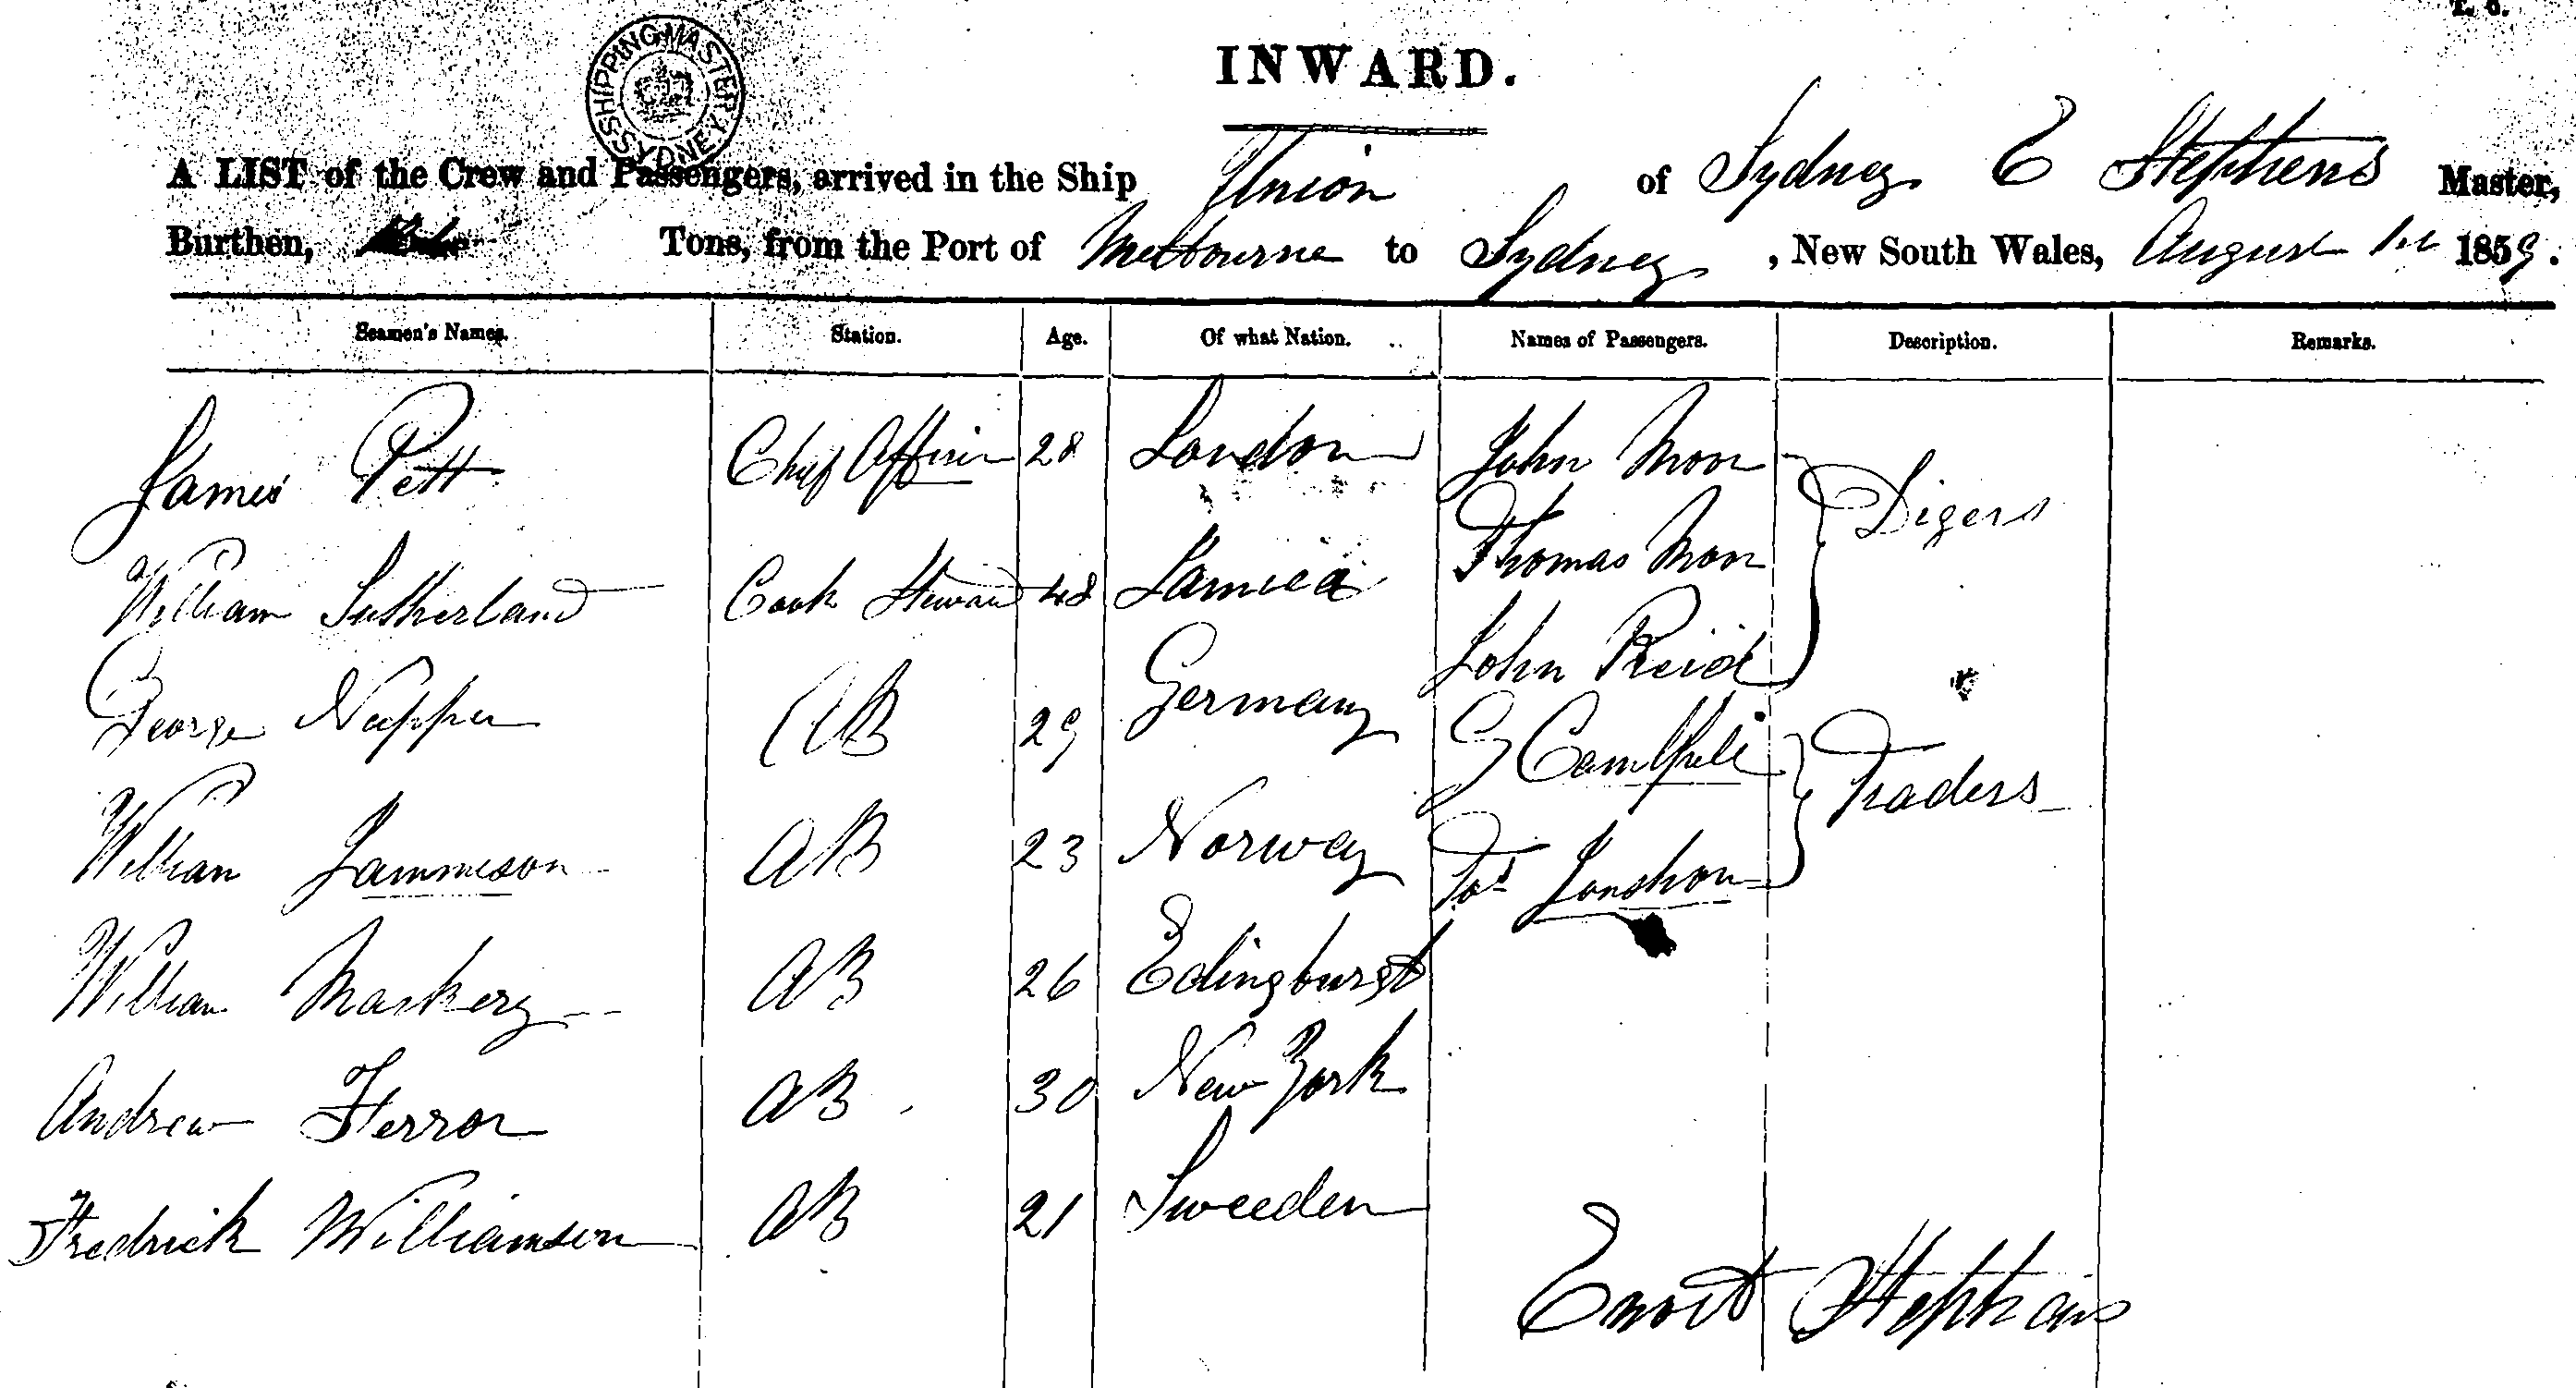 INWARD.
SHIPPING MASTER SYDNEY
A LIST of the Crew and Passengers, arrived in the Ship Union of Sydney E Stephens Master,
Burthen, Tons, from the Port of Melbourne to Sydney, New South Wales, August 1st 1859.
Seamen's Names. Station. Age. Of what Nation. Names of Passengers. Description. Remarks.
James Pett Chief Officer 28 London John Moon
Thomas Moon Digers
William Sutherland Cook Steward 48 John Reid
George Napper AB 29 Germany G Cambpell
Traders
William Jammieson AB 23 Norway Tos Jonshon
William Maskery AB 26 Edingburgh
Andrew Ferror AB 30 New York
Fredrick Williamson AB 21 Sweeden
Stephens